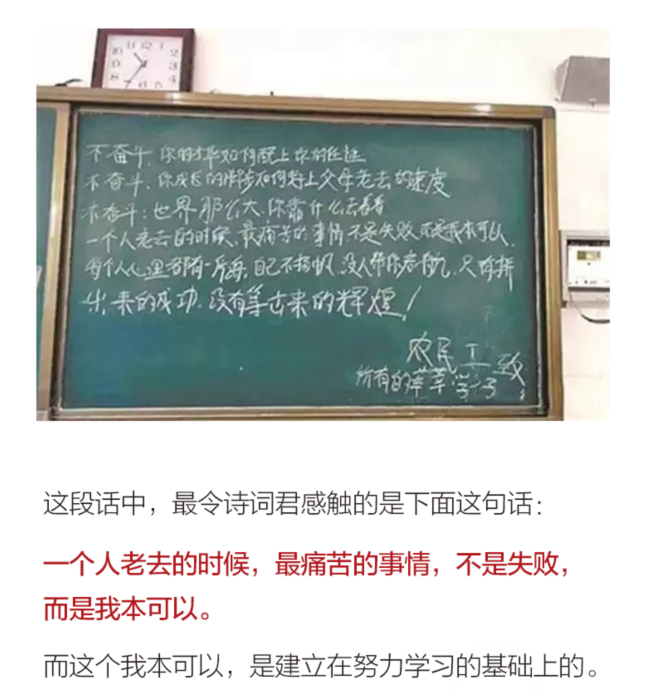 不奋斗，你的才华如何配上你的任性
不奋斗，你成长的脚步如何赶上父母老去的速度
不奋斗：世界那么大，你靠什么去看看
一个人老去的时候，最痛苦的事情，不是失败，而是我本可以，
每个人心里都有一片海，自己不扬帆，没人帮你启航，只有拼
出来的成功，没有等出来的辉煌！
农民工致
所有的莘莘学子
这段话中，最令诗词君感触的是下面这句话：
一个人老去的时候，最痛苦的事情，不是失败，
而是我本可以。
而这个我本可以，是建立在努力学习的基础上的。